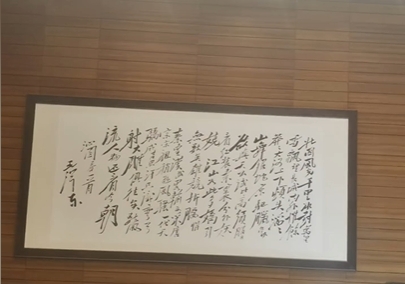 北国风光千里冰封万里雪飘
望长城内外惟馀莽
莽大河上下顿失滔滔
山舞银蛇原驰腊象
欲与天公试比高须晴日
看红装素裹分外妖
娆江山如此多娇引
无数英雄竞折腰惜
秦皇汉武略输文采唐
宗宋祖稍逊风骚一代天
骄成吉思汗只识弯弓
射大雕俱往矣数风
流人物还看今朝
沁园春一首
毛泽东